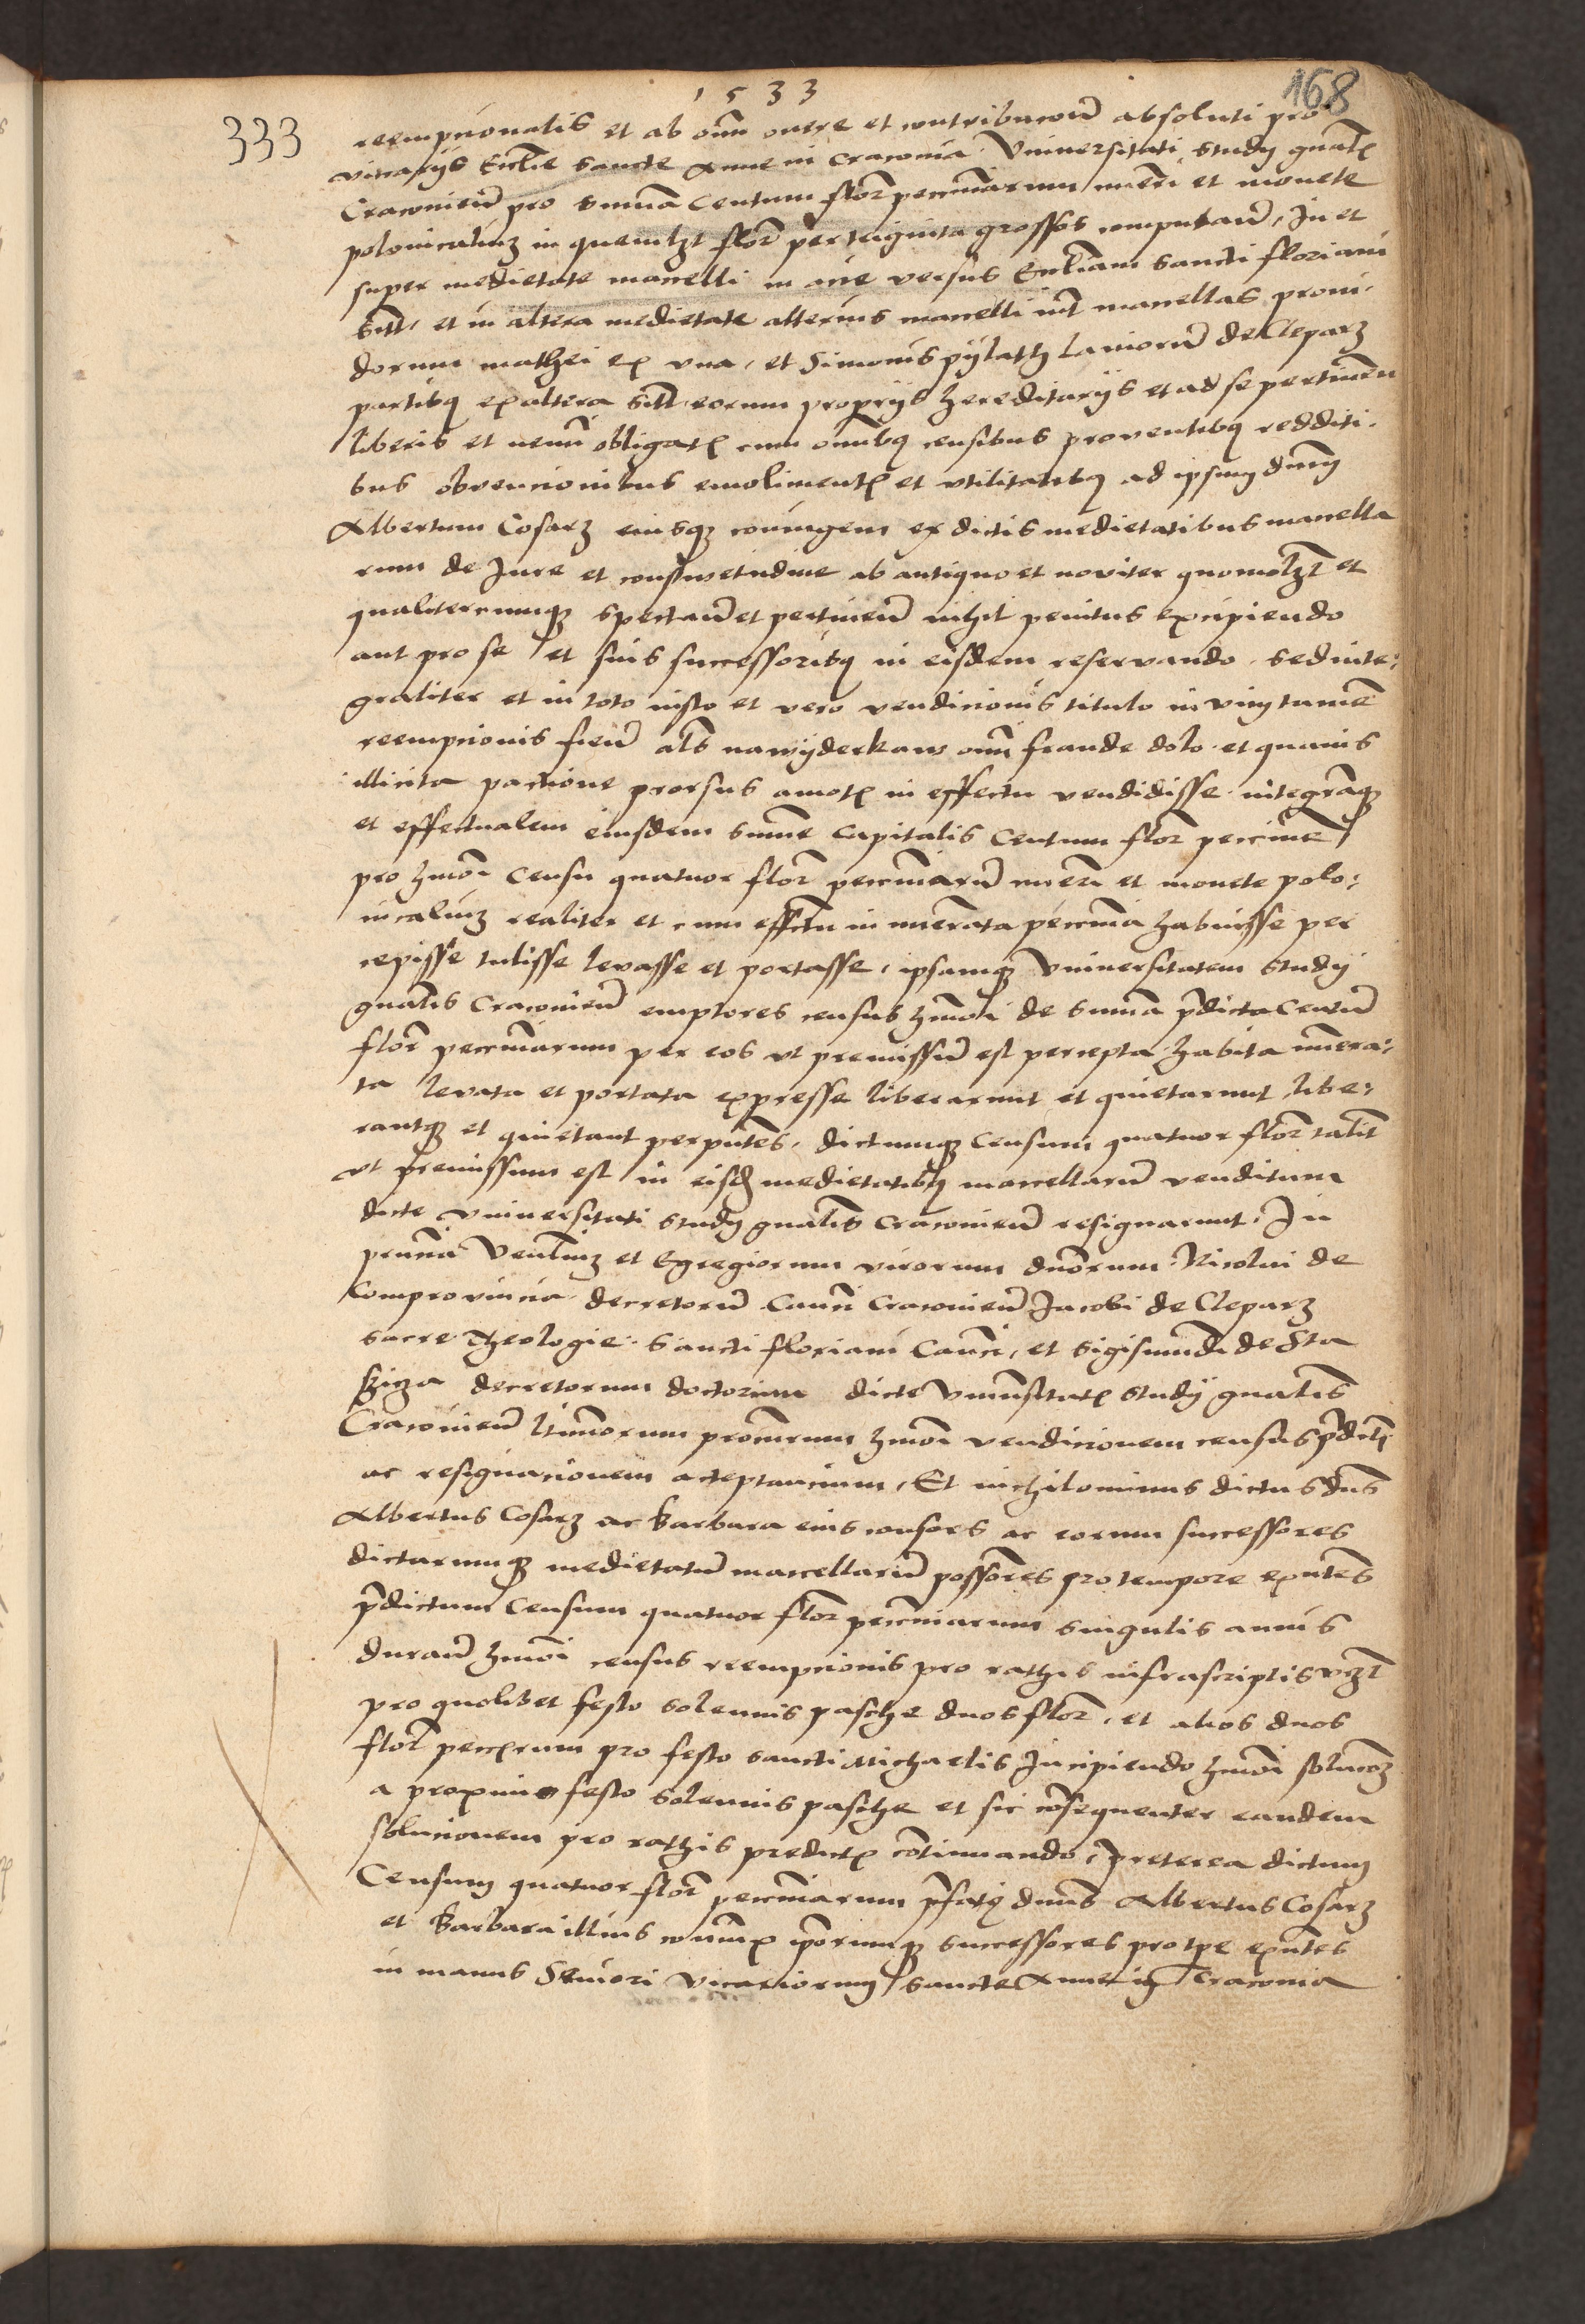 1533
168
333
reempcionalis et ab omni onere et contribucioñ absoluti pro
vicarijs Ecclie sancte Anne in Craconia Vniversitati Studij gnalis
Cracovieñ pro summa Centum floř pecuniarum nuẽri et monete
polonicaliuz in quemlzt floř per triginta grossos computañ, In et
super medietate macelli in acie versus Ecclesiam sancti floriani
sitti, et in altera medietate alterius macelli int̃ macellas provi¬
dorum mathei ex vna, et Simonis pylath laniorũ de Cleparz
partibus ex altera sitti eorum proprijs hereditarijs et ad se pertineñ
liberis et nemini obligatis cum omnibus censibus proventibus redditi¬
bus obvencionibus emolimentis et vtilitatibus ad ipsum dnum
Albertum Cosarz eiusque coniugem ex dictis medietatibus macella
rum de Iure et consuetudine ab antiquo et noviter quomolzt et
qualitercumque spectañ et pertineñ nihil penitus excipiendo
aut pro se et suis successoribus in eisdem reservando, sed inte¬
graliter et in toto iusto et vero vendicionis titulo in vim tamen
reempcionis fieñ als nawyderkaw omni fraude dolo et quavis
illicita pactione prorsus amotis in effectu vendidisse integramque
et effectualem eiusdem summe Capitalis Centum floř pecunie
pro hmõi Censu quatuor floř pecuniarũ nueri et monete polo¬
nicaliuz realiter et cum effectu in nuerata pecunia habuisse per
cepisse tulisse levasse et portasse, ipsamque Vniversitatem studij
gnalis Cracovieñ emptores census hmõi de summa p̃dicta Centũ
floř pecuniarum per eos vt premissũ est percepta habita nuera¬
ta levata et portata expresse liberarunt et quietarunt libe¬
rantque et quietant per pñtes, dictumque Censum quatuor floř talit̃
vt premissum est in eisd̃ medietatibus macellarũ venditum
dicte Vniversitati studij gnalis Cracovieñ resignarunt. In
pñcia Venliuz et Egregiorum virorum dnorum Nicolai de
Comprovincia decretorũ Canci Cracovieñ Iacobi de Cleparz
sacre Theologie Sancti floriani Canci, et Sigismundi de Sta
zicza decretorum doctorum dicte Vniversitatis studij gnalis
Cracovieñ ltimorum procurum hmõi vendicionem census p̃dicti
ac resignacionem acceptancium, Et nichilominus dictus dns
Albertus Cosarz ac Barbara eius consors ac eorum successores
dictarumque medietatũ macellarũ possores pro tempore exñtes
p̃dictum Censum quatuor floř pecuniarum singulis annis
durañ hmõi census reempcionis pro rathis infrascriptis vzt
pro quolibet festo solennis pasche duos floř, et alios duos
floř pecurum pro festo sancti Michaelis Incipiendo hmõi solucoz
a proximo festo solennis pasche et sic consequenter eandem
solucionem pro rathis predictis continuando, preterea dictum
Censum quatuor floř pecuniarum p̃fatus dnus Albertus Cosarz
et Barbara illius coniunx ip̃orumque successores pro tpe exñtes
in manus Seniori Vicariorum sancte Anne in Cracovia